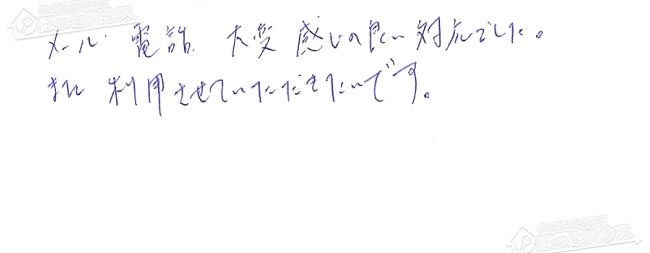 メール・電話、大変感じの良い対応でした。
また利用させていただきたいです。